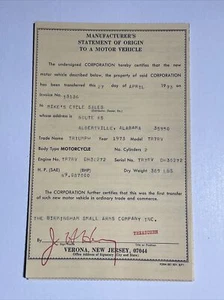 MANUFACTURER'S
STATEMENT OF ORIGIN
TO A MOTOR VEHICLE
The undersigned CORPORATION hereby certifies that the new
motor vehicle described below, the property of said CORPORATION
has been transferred this 17 day of APRIL 19
on Invoice No.
to MIKE'S CYCLE SALES
whose address is ROUTE #5
ALBERTVILLE, ALABAMA 35950
Trade Name TRIUMPH Year 1973 Model TR7RV
Body Type MOTORCYCLE No. Cylinders 2
Engine No. TR7RV Serial No. TR7RV
H. P. (SAE) (BHP) Dry Weight LBS
The CORPORATION further certifies that this was the first transfer
of such new motor vehicle in ordinary trade and commerce.
THE BIRMINGHAM SMALL ARMS COMPANY INC.
By
TREASURER
VERONA, NEW JERSEY, 07044